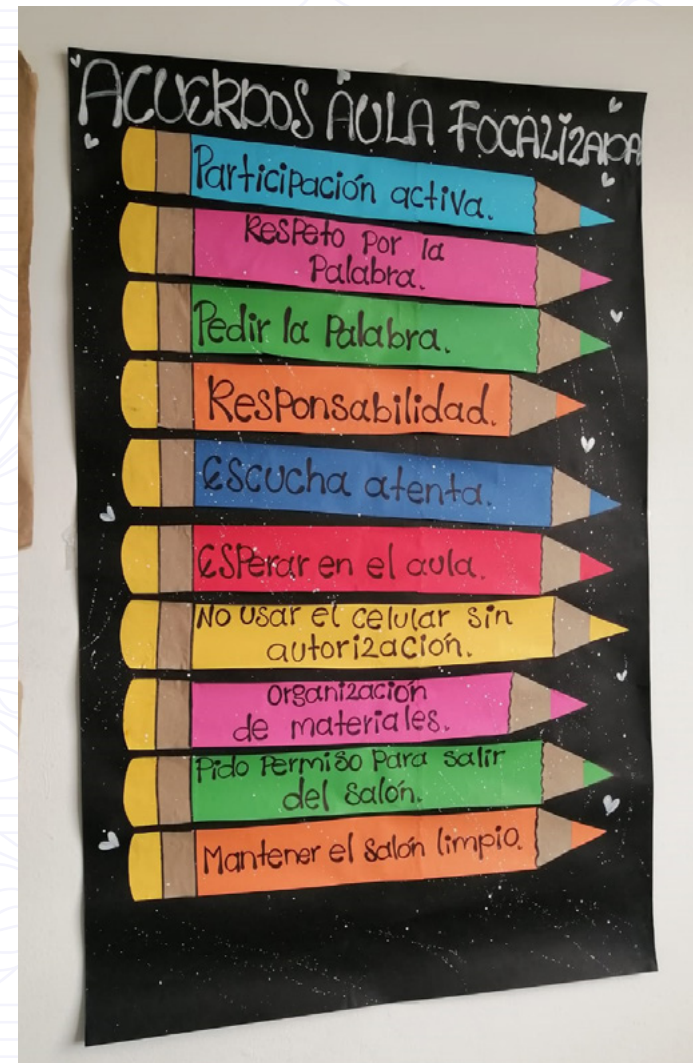 ACUERDOS AULA FOCALIZADA
Participación activa.
Respeto por la
Palabra.
Pedir la Palabra.
Responsabilidad.
Escucha atenta.
Esperar en el aula.
No usar el celular sin
autorización.
organización
de materiales.
Pido Permiso Para salir
del salón.
Mantener el salón limpio.